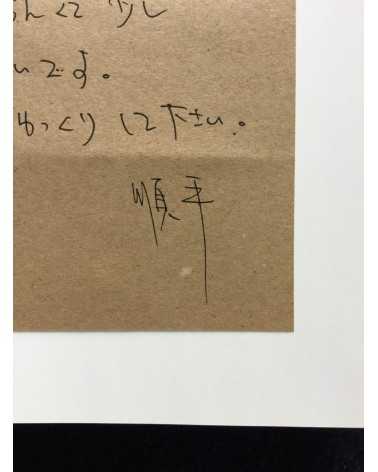 んで少し
いです。
ゆっくりして下さい。
順平